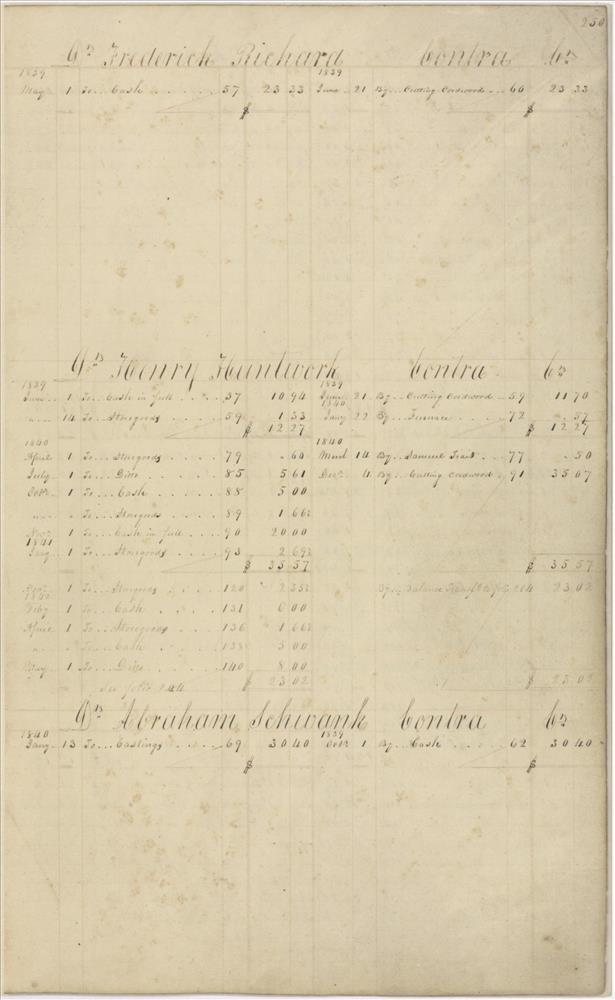 250
Dr Frederick Richard Contra Cr
1839 1839
May 1 To Cash 57 23 33 June 21 By Cutting Cordwood 60 23 33
$ $
Drs Henry Huntwork Contra Cr
1839 1839
June 1 To Cash in full 37 10 94 June 21 By Cutting Cordwood 59 11 70
1840
" 14 To Storegoods 59 1 33 Jany 22 By Furnace 72 57
$ 12 27 $ 12 27
1840 1840
April 1 To Storegoods 79 60 March 14 By Samuel 77 50
July 1 To Ditto 85 5 61 Decr 4 By Cutting Cordwood 91 35 07
Octr 1 To Cash 88 5 00
" " To Storegoods 89 1 66½
Novr 1 To Cash in full 90 20 00
1841
Jany 1 To Storegoods 93 2 69½
$ 35 57 $ 35 57
To Storegoods 120 2 35½ By Balance Transfd to folio 23 02
Feby 1 To Cash 131 6 00
April 1 To Storegoods 136 1 66½
" " To Cash 138 5 00
May 1 To Ditto 140 8 00
See folio $ 23 02 $ 23 02
Drs Abraham Schwank Contra Cr
1840 1839
Jany 13 To Castings 69 30 40 Octr 1 By Cash 62 30 40
$ $